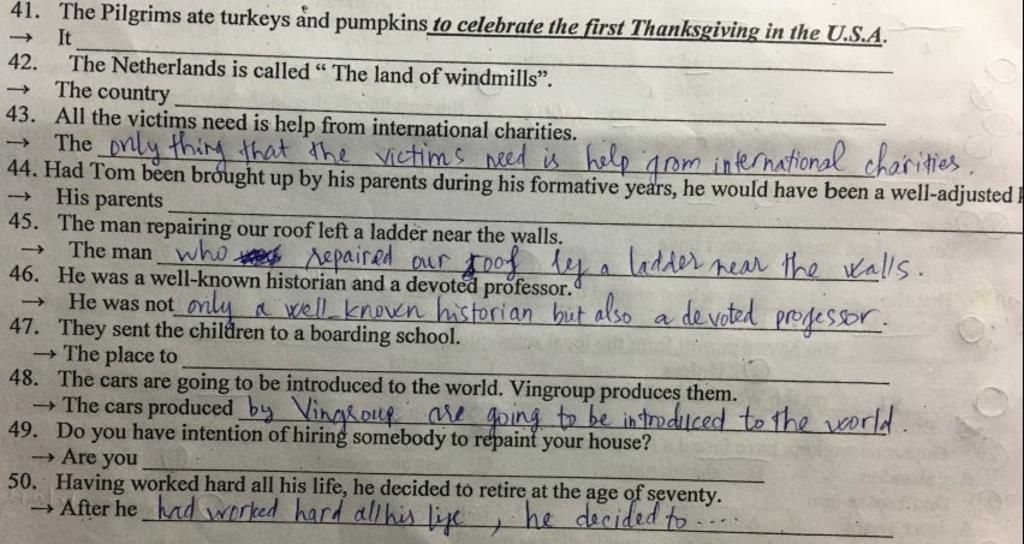 41. The Pilgrims ate turkeys and pumpkins to celebrate the first Thanksgiving in the U.S.A.
→ It
42. The Netherlands is called “ The land of windmills”.
→ The country
43. All the victims need is help from international charities.
→ The only thing that the victims need is help from international charities.
44. Had Tom been brought up by his parents during his formative years, he would have been a well-adjusted
→ His parents
45. The man repairing our roof left a ladder near the walls.
→ The man who repaired our roof left a ladder near the walls.
46. He was a well-known historian and a devoted professor.
→ He was not only a well-known historian but also a devoted professor.
47. They sent the children to a boarding school.
→ The place to
48. The cars are going to be introduced to the world. Vingroup produces them.
→ The cars produced by Vingroup are going to be introduced to the world.
49. Do you have intention of hiring somebody to repaint your house?
→ Are you
50. Having worked hard all his life, he decided to retire at the age of seventy.
→ After he had worked hard all his life, he decided to ....